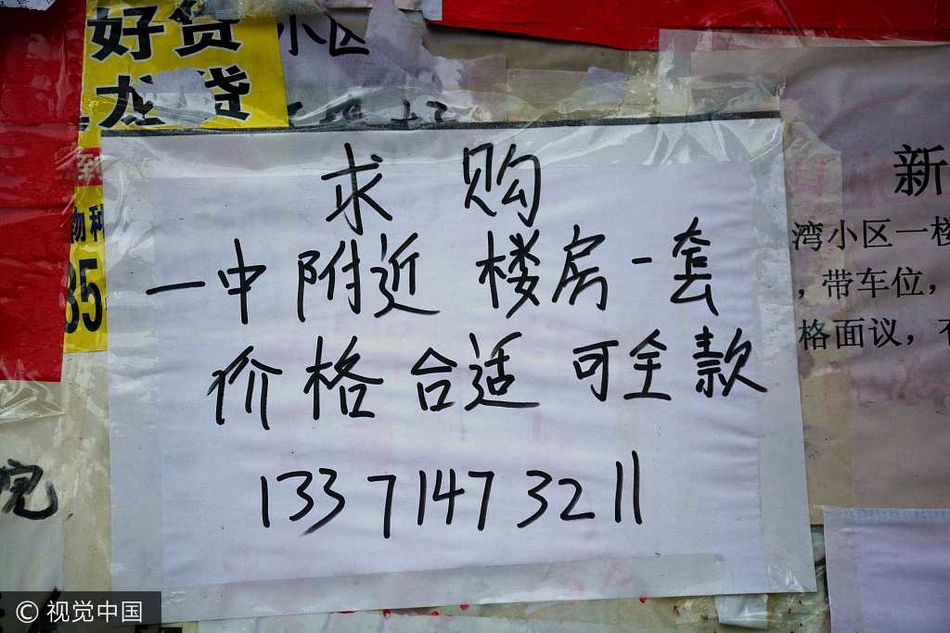 好贷
龙贷
小区
求购
一中附近 楼房一套
价格合适 可全款
13371473211
物和
35
新
湾小区一楼
，带车位，
格面议，
院
© 视觉中国